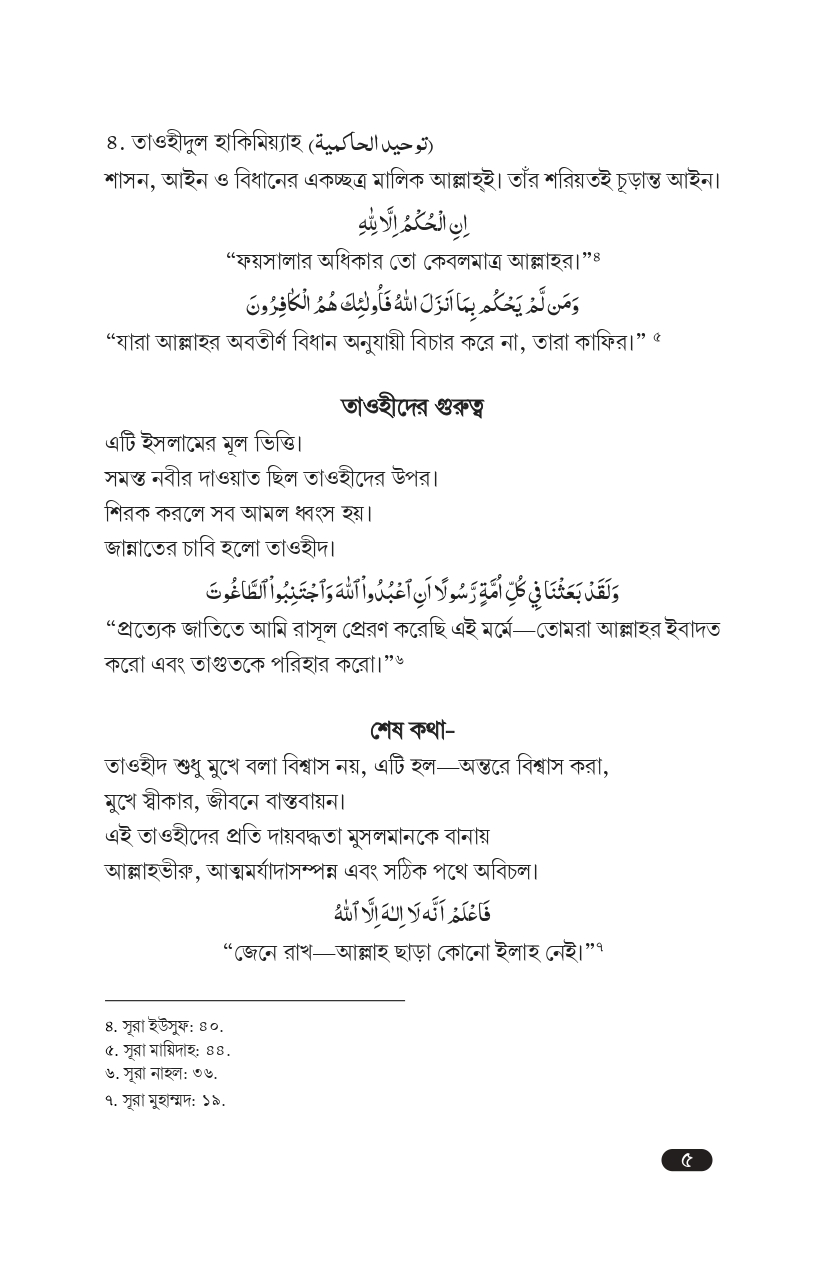 ৪. তাওহীদুল হাকিমিয়্যাহ (توحيد الحاكمية)
শাসন, আইন ও বিধানের একচ্ছত্র মালিক আল্লাহ্‌ই। তাঁর শরিয়তই চূড়ান্ত আইন।
اِنِ الْحُكْمُ اِلَّا لِلّٰهِ
“ফয়সালার অধিকার তো কেবলমাত্র আল্লাহর।”⁴
وَمَن لَّمْ يَحْكُم بِمَا اَنزَلَ اللّٰهُ فَاُولٰئِكَ هُمُ الْكَافِرُونَ
“যারা আল্লাহর অবতীর্ণ বিধান অনুযায়ী বিচার করে না, তারা কাফির।” ৫
তাওহীদের গুরুত্ব
এটি ইসলামের মূল ভিত্তি।
সমস্ত নবীর দাওয়াত ছিল তাওহীদের উপর।
শিরক করলে সব আমল ধ্বংস হয়।
জান্নাতের চাবি হলো তাওহীদ।
وَلَقَدْ بَعَثْنَا فِي كُلِّ اُمَّةٍ رَّسُولًا اَنِ ٱعْبُدُواْ ٱللّٰهَ وَٱجْتَنِبُواْ ٱلطَّاغُوتَ
“প্রত্যেক জাতিতে আমি রাসূল প্রেরণ করেছি এই মর্মে—তোমরা আল্লাহর ইবাদত
করো এবং তাগুতকে পরিহার করো।”৬
শেষ কথা-
তাওহীদ শুধু মুখে বলা বিশ্বাস নয়, এটি হল—অন্তরে বিশ্বাস করা,
মুখে স্বীকার, জীবনে বাস্তবায়ন।
এই তাওহীদের প্রতি দায়বদ্ধতা মুসলমানকে বানায়
আল্লাহভীরু, আত্মমর্যাদাসম্পন্ন এবং সঠিক পথে অবিচল।
فَاعْلَمْ اَنَّه لَا اِلٰهَ اِلَّا ٱللّٰهُ
“জেনে রাখ—আল্লাহ ছাড়া কোনো ইলাহ নেই।”৭
৪. সূরা ইউসুফ: ৪০.
৫. সূরা মায়িদাহ: ৪৪.
৬. সূরা নাহল: ৩৬.
৭. সূরা মুহাম্মদ: ১৯.
৫